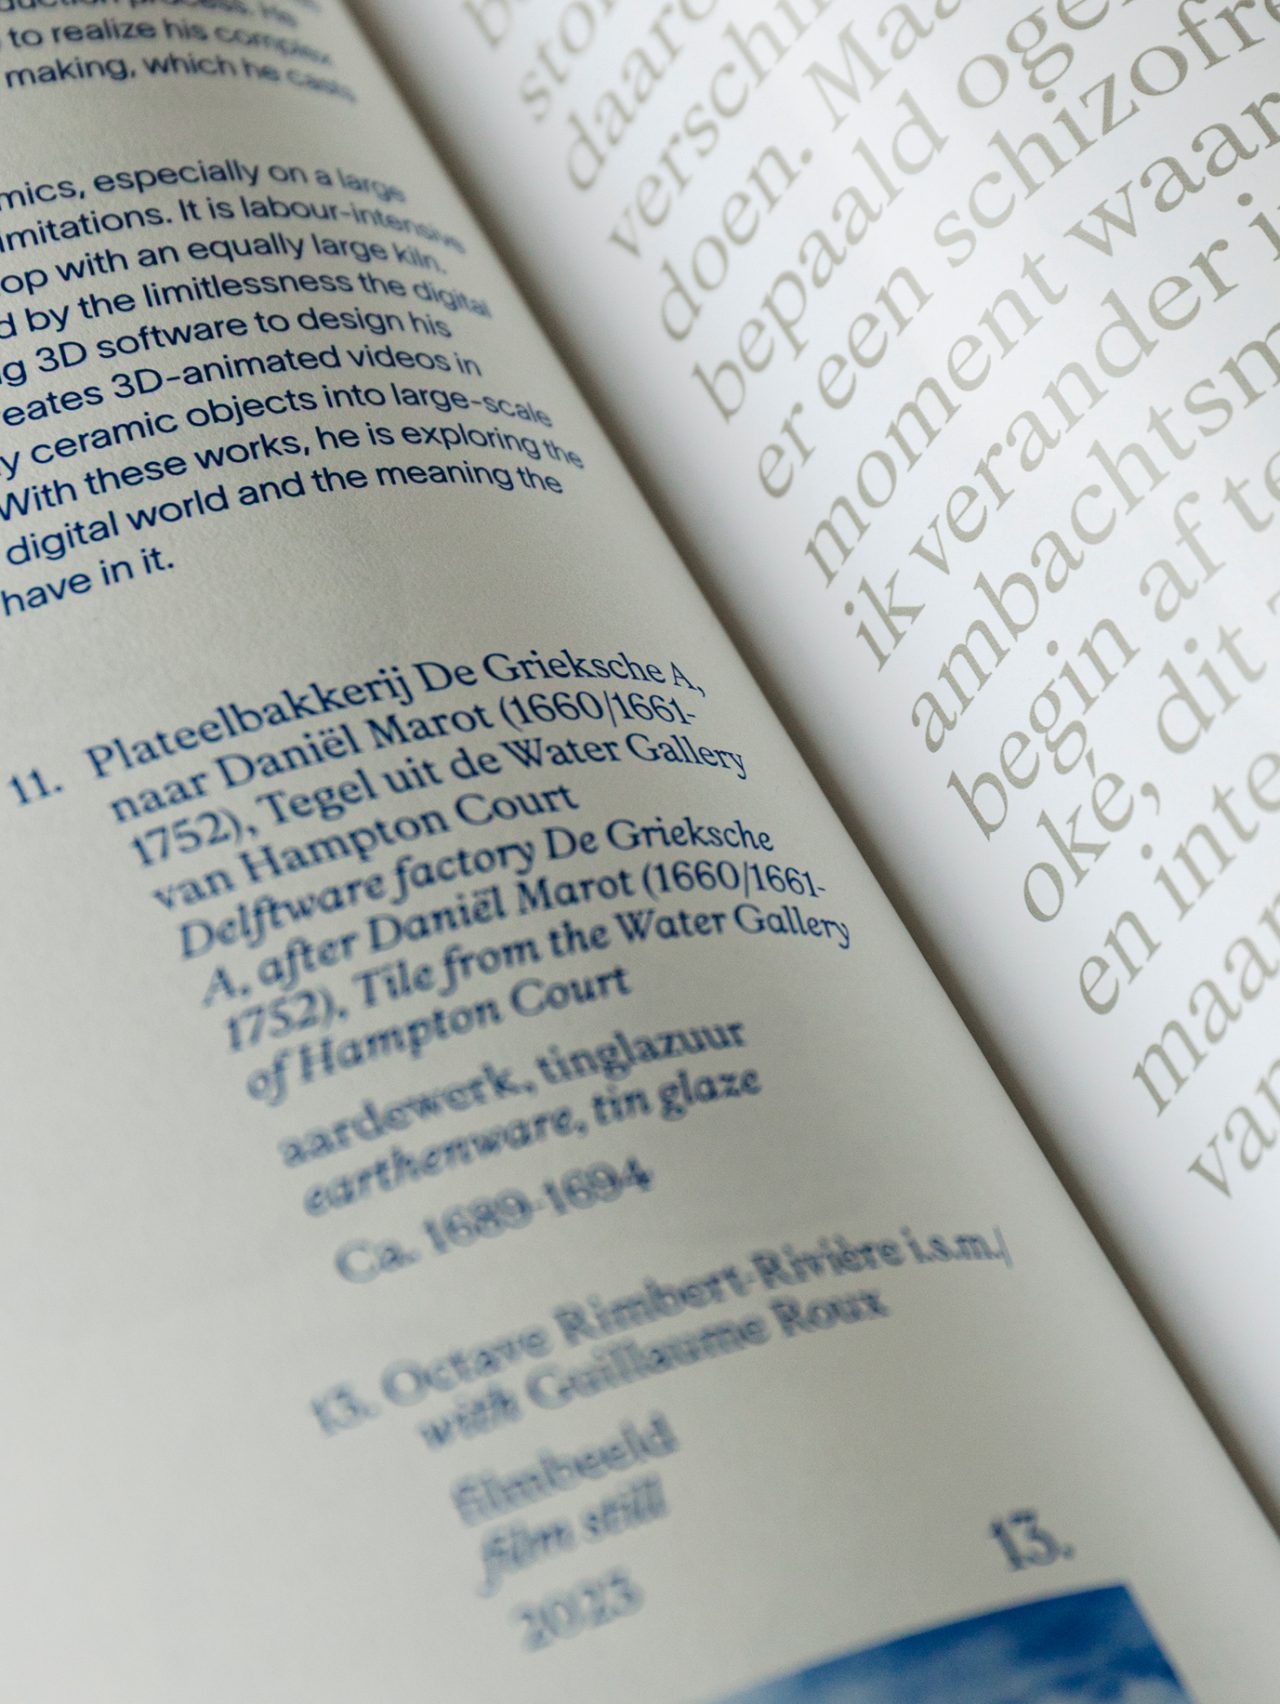 process. He
to realize his complex
making, which he casts
especially on a large
limitations. It is labour-intensive
with an equally large kiln.
by the limitlessness the digital
3D software to design his
3D-animated videos in
ceramic objects into large-scale
With these works, he is exploring the
digital world and the meaning the
have in it.
11. Plateelbakkerij De Grieksche A,
naar Daniël Marot (1660/1661-
1752), Tegel uit de Water Gallery
van Hampton Court
Delftware factory De Grieksche
A, after Daniël Marot (1660/1661-
1752), Tile from the Water Gallery
of Hampton Court
aardewerk, tinglazuur
earthenware, tin glaze
Ca. 1689-1694
13. Octave Rimbert-Rivière i.s.m./
with Guillaume Roux
filmbeeld
film still
2023
13.
doen. Maa
bepaald ogen
er een schizofre
moment waar
ik verander i
ambachtsm
begin af te
oké, dit
en inte
maar
van